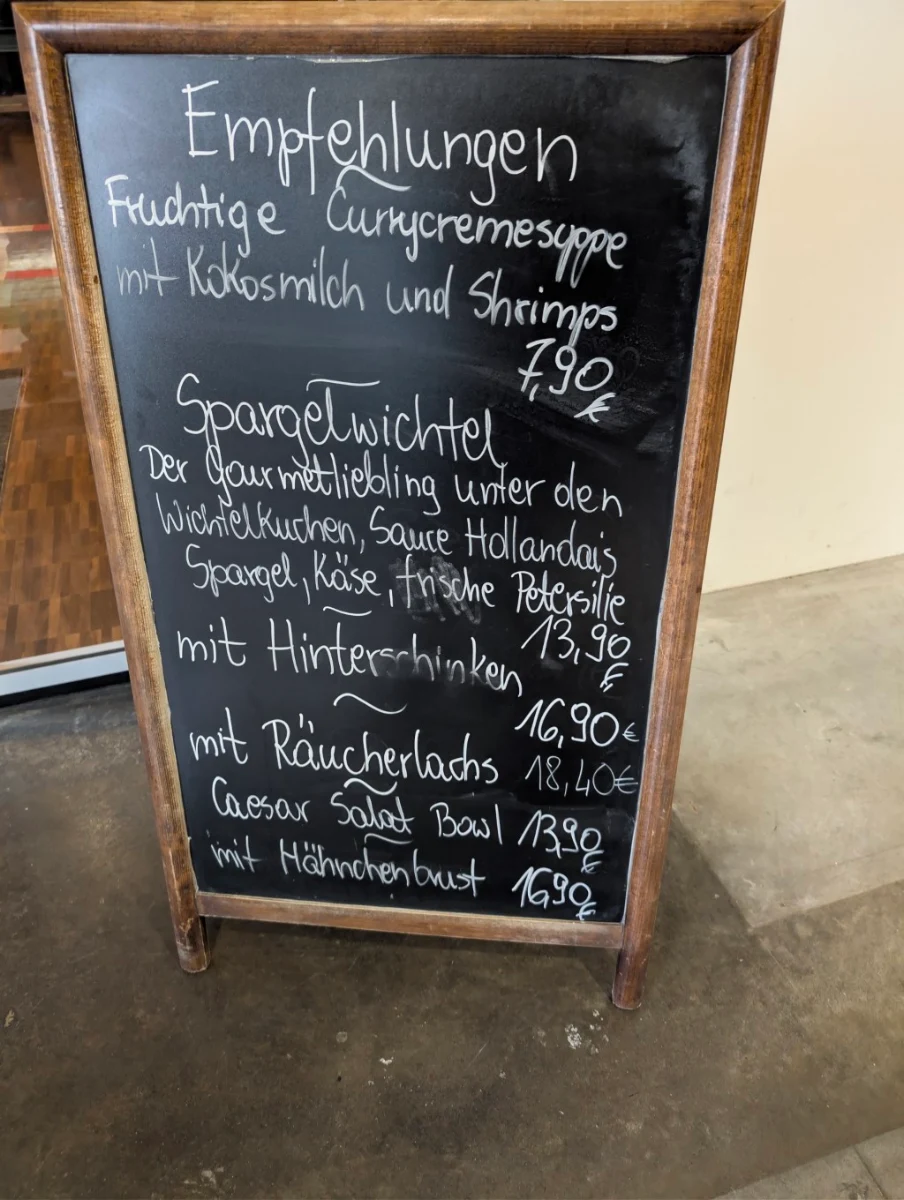 Empfehlungen
Fruchtige Currycremesuppe
mit Kokosmilch und Shrimps
7,90
€
Spargelwichtel
Der Gourmetliebling unter den
Wichtelkuchen, Sauce Hollandais
Spargel, Käse, frische Petersilie
13,90
€
mit Hinterschinken
16,90€
mit Räucherlachs 18,40€
Caesar Salat Bowl 13,90
€
mit Hähnchenbrust 16,90
€